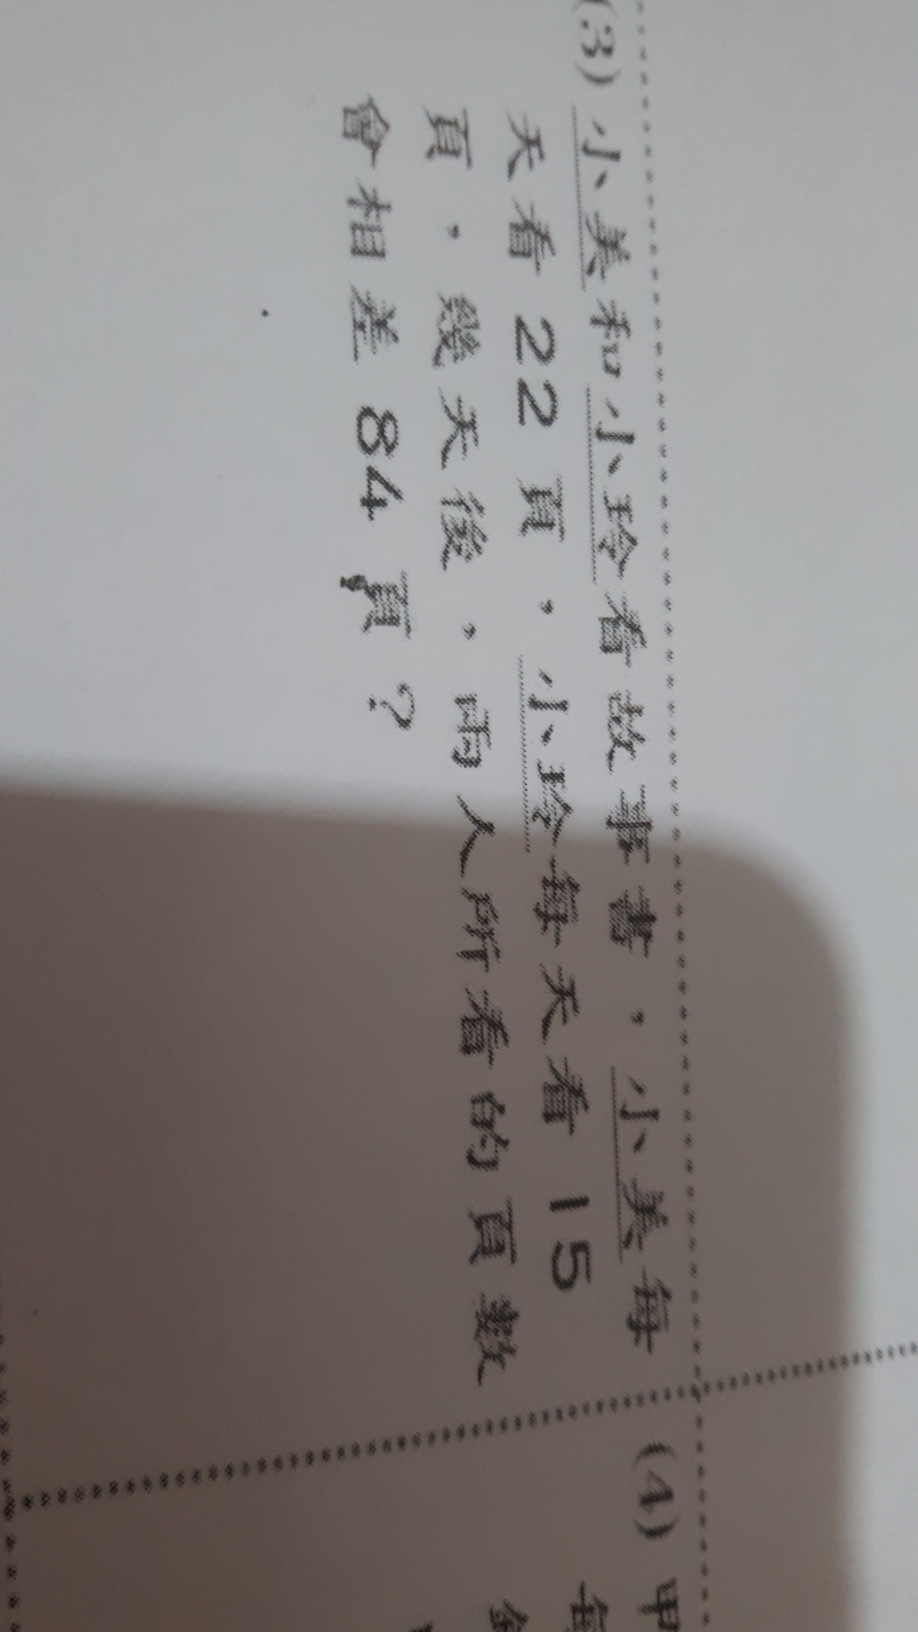 (3) 小美和小玲看故事書，小美每
天看 22 頁，小玲每天看 15
頁，幾天後，兩人所看的頁數
會相差 84 頁？
(4) 甲
每